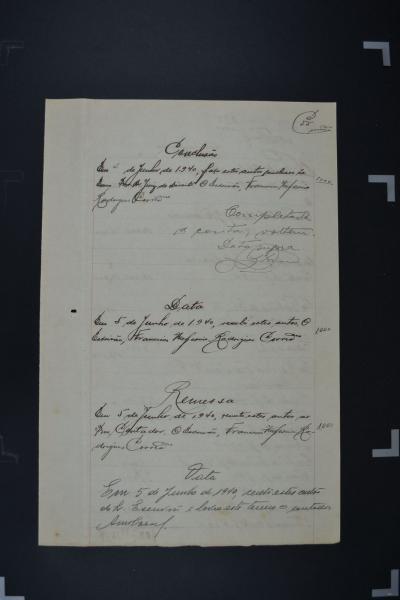 55
Conclusão
Em 5 de Junho de 1940, faço estes autos conclusos ao
Exmo. Snr. Dr. Juiz de Direito. O Escrivão, Francisco
Rodrigues Corrêa
1000
Completada
a conta, voltem.
Data supra
Data
Em 5 de Junho de 1940, recebi estes autos. O
Escrivão, Francisco Rodrigues Corrêa
1000
Remessa
Em 5 de Junho de 1940, remeto estes autos ao
Snr. Contador. O Escrivão, Francisco Ro-
drigues Corrêa
1000
Data
Em 5 de Junho de 1940, recebi estes autos
do Sr. Escrivão e lavro este termo o contador